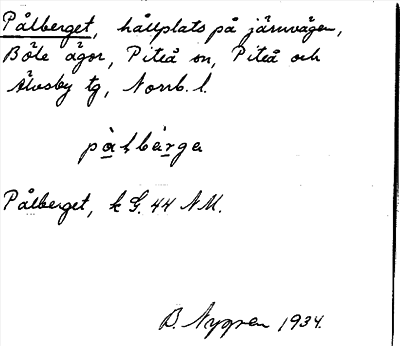 Pålberget, hållplats på järnvägen,
Böle ägor, Piteå sn, Piteå och
Älvsby tg, Norrb. l.
pålbärga
Pålberget, k G. 44 NM.
B. Nygren 1934.